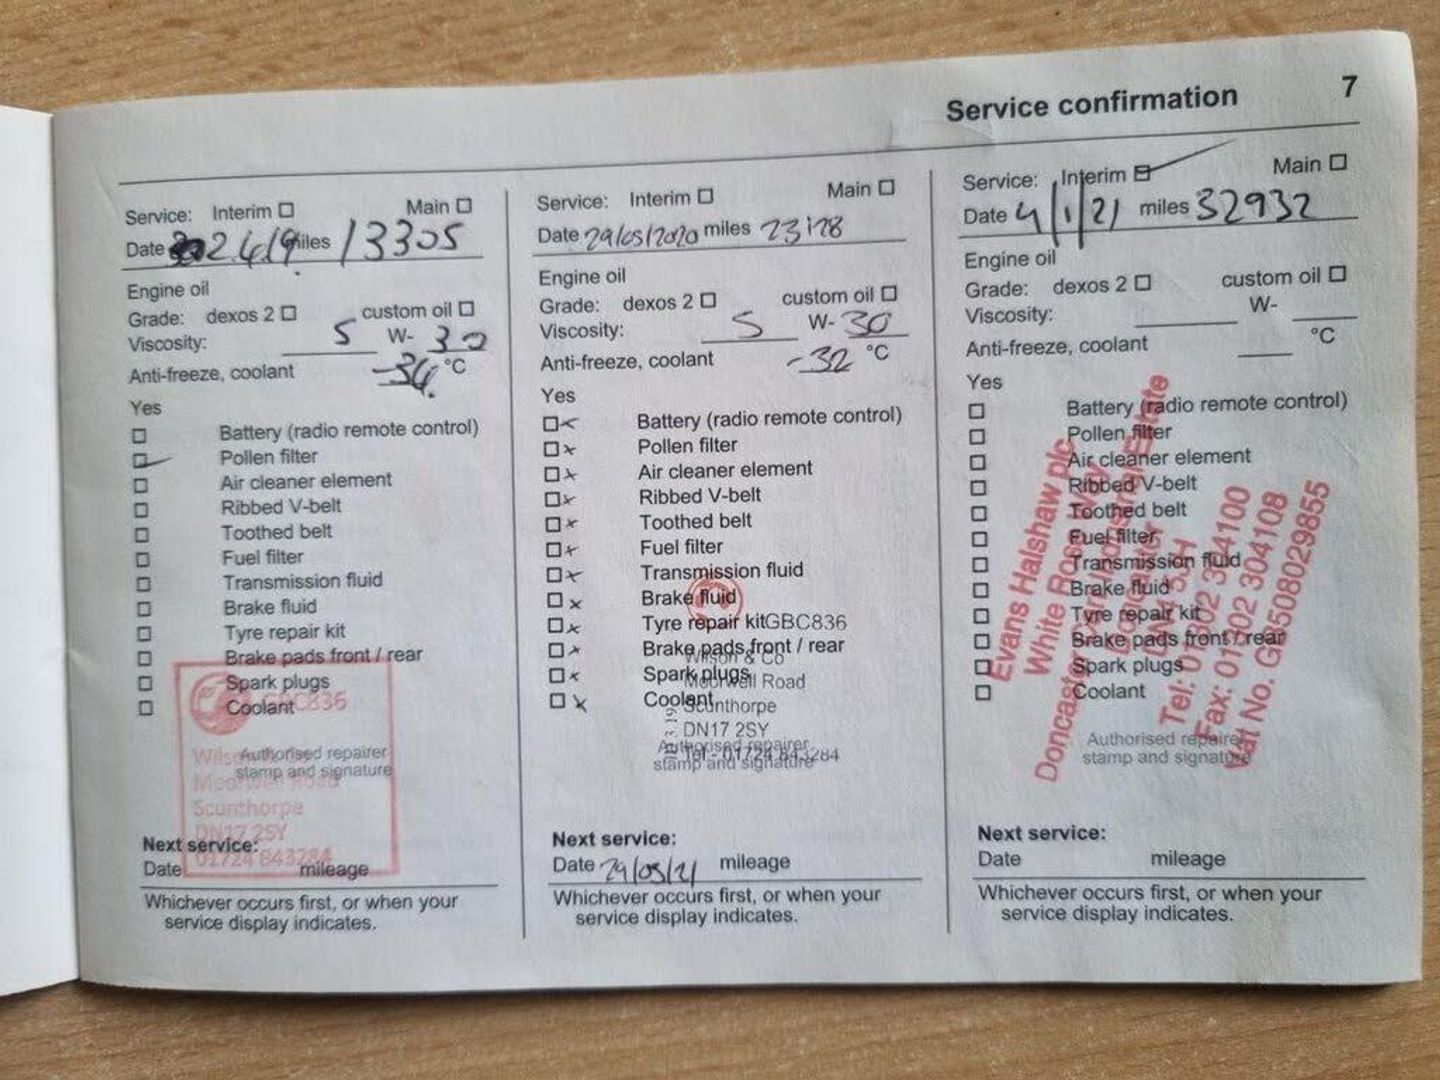 Service confirmation 7
Service: Interim Main
Date miles 13305
Engine oil
Grade: dexos 2 custom oil
Viscosity: 5 W- 30
Anti-freeze, coolant -34 °C
Yes
Battery (radio remote control)
Pollen filter
Air cleaner element
Ribbed V-belt
Toothed belt
Fuel filter
Transmission fluid
Brake fluid
Tyre repair kit
Brake pads front / rear
Spark plugs
Coolant
GBC836
Authorised repairer
stamp and signature
Moorwell Road
Scunthorpe
DN17 2SY
01724 843284
Next service:
Date mileage
Whichever occurs first, or when your
service display indicates.
Service: Interim Main
Date 29/05/2020 miles 23128
Engine oil
Grade: dexos 2 custom oil
Viscosity: 5 W- 30
Anti-freeze, coolant -32 °C
Yes
Battery (radio remote control)
Pollen filter
Air cleaner element
Ribbed V-belt
Toothed belt
Fuel filter
Transmission fluid
Brake fluid
Tyre repair kit GBC836
Brake pads front / rear
Wilson & Co
Spark plugs
Moorwell Road
Coolant
Scunthorpe
DN17 2SY
Authorised repairer
Tel - 01724 843284
stamp and signature
Next service:
Date 29/05/21 mileage
Whichever occurs first, or when your
service display indicates.
Service: Interim Main
Date 4/1/21 miles 32932
Engine oil
Grade: dexos 2 custom oil
Viscosity: W-
Anti-freeze, coolant °C
Yes
Battery (radio remote control)
Pollen filter
Air cleaner element
Ribbed V-belt
Toothed belt
Fuel filter
Transmission fluid
Brake fluid
Tyre repair kit
Brake pads front / rear
Spark plugs
Coolant
Evans Halshaw plc
White Rose Way
Doncaster Estate
Doncaster
Tel: 01302 304100
Fax: 01302 304108
Vat No. GB508029855
Authorised repairer
stamp and signature
Next service:
Date mileage
Whichever occurs first, or when your
service display indicates.